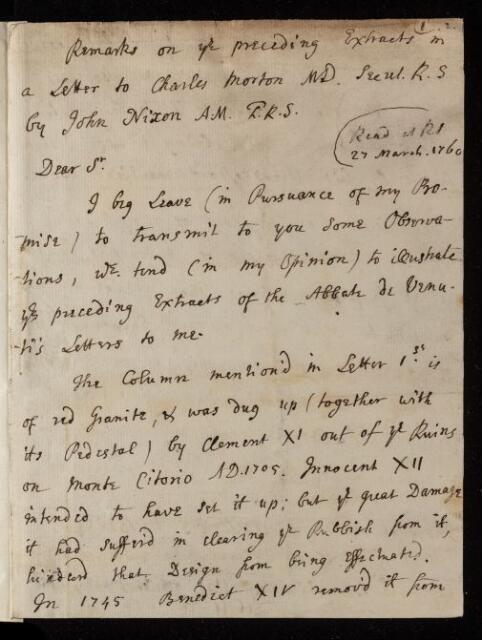 1 2.
Remarks on ye preceding Extracts in
a Letter to Charles Morton MD. Secut. R. S
by John Nixon A.M. F.R.S.
Read at RS
27 March. 1760
Dear Sr.
I beg Leave (in Pursuance of my Pro-
-mise) to transmit to you some Observa-
-tions, wc. tend (in my Opinion) to illustrate
ye preceding Extracts of the Abbate de Venu-
-ti's Letters to me.
The Column mention'd in Letter 1.st is
of red Granite, & was dug up (together with
its Pedestal) by Clement XI out of ye Ruins
on Monte Citorio AD. 1705. Innocent XII
intended to have set it up; but ye great Damage
it had suffer'd in clearing ye Rubbish from it,
hinderd that Design from being effectuated.
In 1745 Benedict XIV remov'd it from